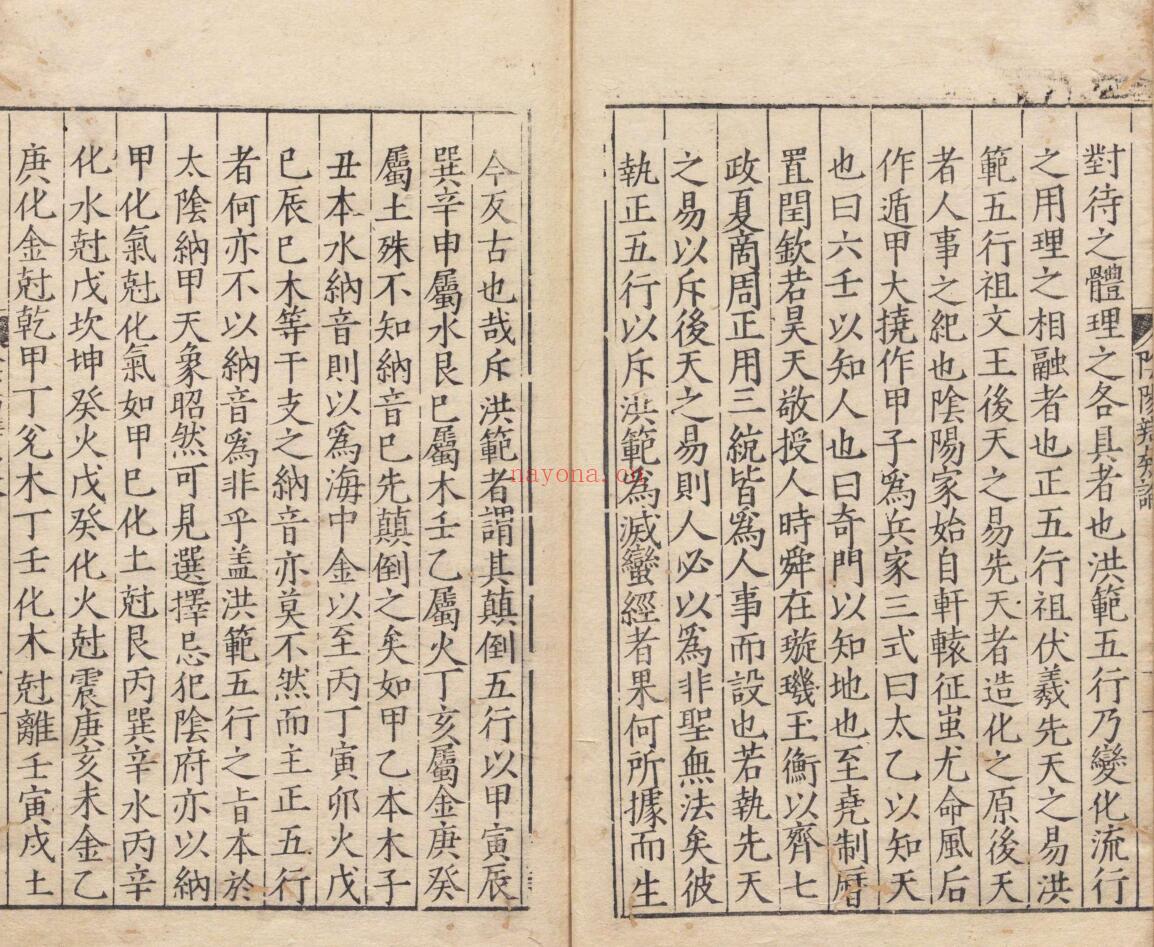 陰陽辯疑論
對待之體理之各具者也洪範五行乃變化流行
之用理之相融者也正五行祖伏羲先天之易洪
範五行祖文王後天之易先天者造化之原後天
者人事之紀也陰陽家始自軒轅征蚩尤命風后
作遁甲大撓作甲子爲兵家三式曰太乙以知天
也曰六壬以知人也曰奇門以知地也至堯制曆
置閏欽若昊天敬授人時舜在璇璣玉衡以齊七
政夏商周正用三統皆爲人事而設也若執先天
之易以斥後天之易則人必以爲非聖無法矣彼
執正五行以斥洪範為滅蠻經者果何所據而生
今反古也哉斥洪範者謂其顛倒五行以甲寅辰
巽辛申屬水艮巳屬木壬乙屬火丁亥屬金庚癸
屬土殊不知納音已先顛倒之矣如甲乙本木子
丑本水納音則以爲海中金以至丙丁寅卯火戊
己辰巳木等干支之納音亦莫不然而主正五行
者何亦不以納音爲非乎盖洪範五行之旨本於
太陰納甲天象昭然可見選擇忌犯陰府亦以納
甲化氣尅化氣如甲巳化土尅艮丙巽辛水丙辛
化水尅戊坎坤癸火戊癸化火尅震庚亥未金乙
庚化金尅乾甲丁兊木丁壬化木尅離壬寅戌土
nayona.cn